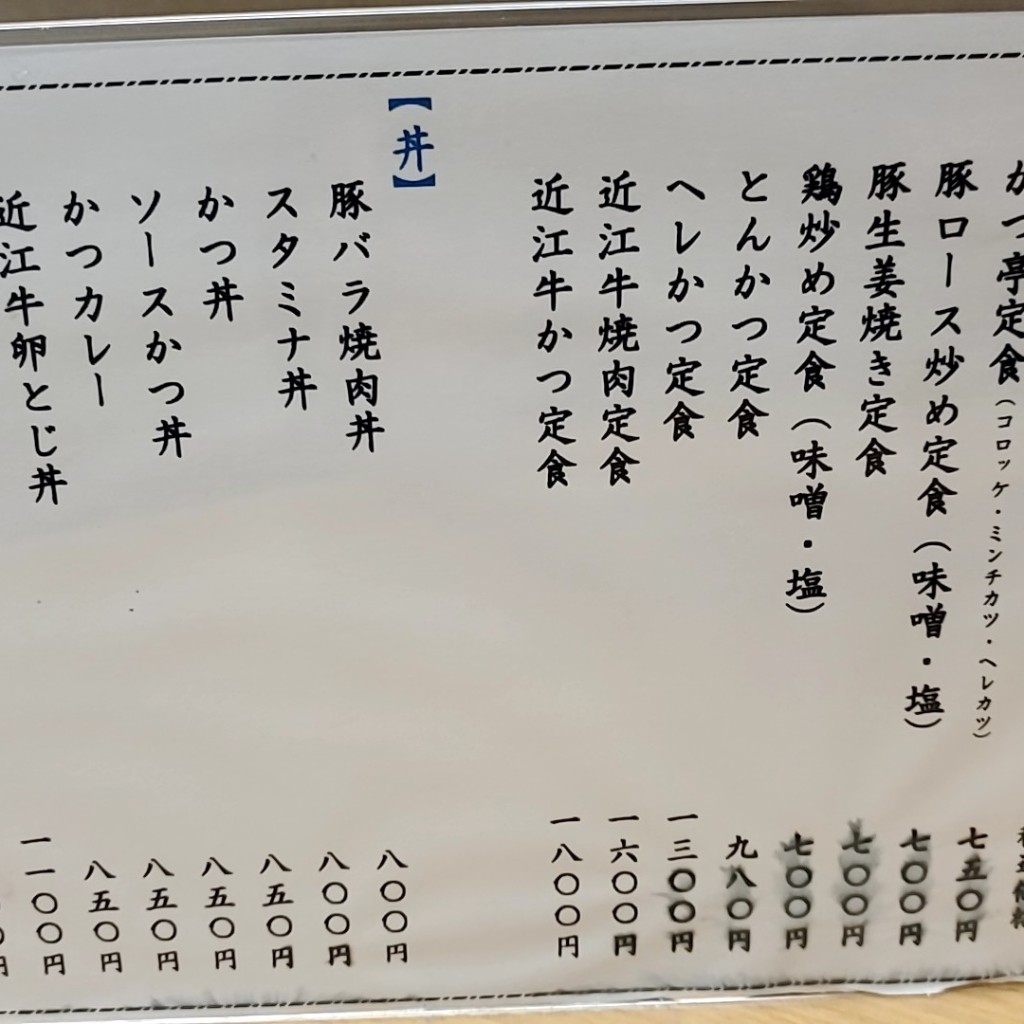 かつ亭定食(コロッケ・ミンチカツ・ヘレカツ) 七五〇円
豚ロース炒め定食(味噌・塩) 七〇〇円
豚生姜焼き定食 七〇〇円
鶏炒め定食(味噌・塩) 七〇〇円
とんかつ定食 九八〇円
ヘレかつ定食 一三〇〇円
近江牛焼肉定食 一六〇〇円
近江牛かつ定食 一八〇〇円
【丼】
豚バラ焼肉丼 八〇〇円
スタミナ丼 八〇〇円
かつ丼 八五〇円
ソースかつ丼 八五〇円
かつカレー 八五〇円
近江牛卵とじ丼 八五〇円
一一〇〇円